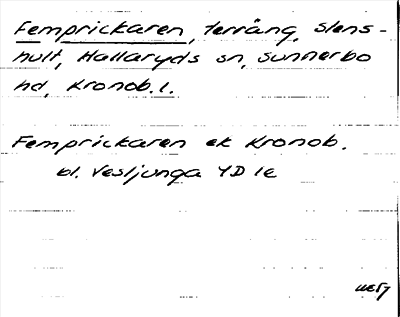 Femprickaren, terräng, Slens-
hult, Hallaryds sn, Sunnerbo
hd, Kronob. l.
Femprickaren ek Kronob.
bl. Vesljunga 4D 1e